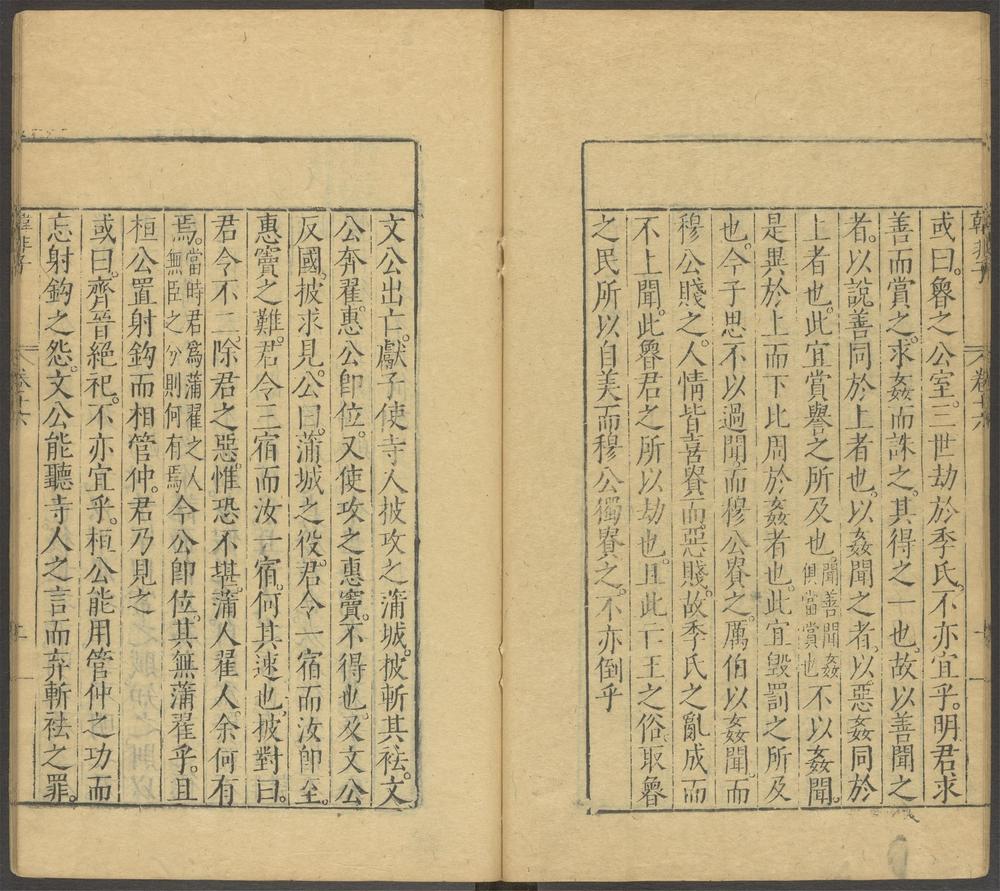 或曰魯之公室三世劫於季氏不亦宜乎明君求
善而賞之求姦而誅之其得之一也故以善聞之
者以說善同於上者也以姦聞之者以惡姦同於
上者也此宜賞譽之所及也聞善聞姦俱當賞也不以姦聞
是異於上而下比周於姦者也此宜毀罰之所及
也今子思不以過聞而穆公貴之厲伯以姦聞而
穆公賤之人情皆喜貴而惡賤故季氏之亂成而
不上聞此魯君之所以劫也且此亡王之俗取魯
之民所以自美而穆公獨貴之不亦倒乎
文公出亡獻子使寺人披攻之蒲城披斬其袪文
公奔翟惠公即位又使攻之惠竇不得也及文公
反國披求見公曰蒲城之役君令一宿而汝即至
惠竇之難君令三宿而汝一宿何其速也披對曰
君令不二除君之惡惟恐不堪蒲人翟人余何有
焉當時君爲蒲翟之人無臣之分則何有焉今公即位其無蒲翟乎且
桓公置射鈎而相管仲君乃見之
或曰齊晉絕祀不亦宜乎桓公能用管仲之功而
忘射鈎之怨文公能聽寺人之言而弃斬袪之罪